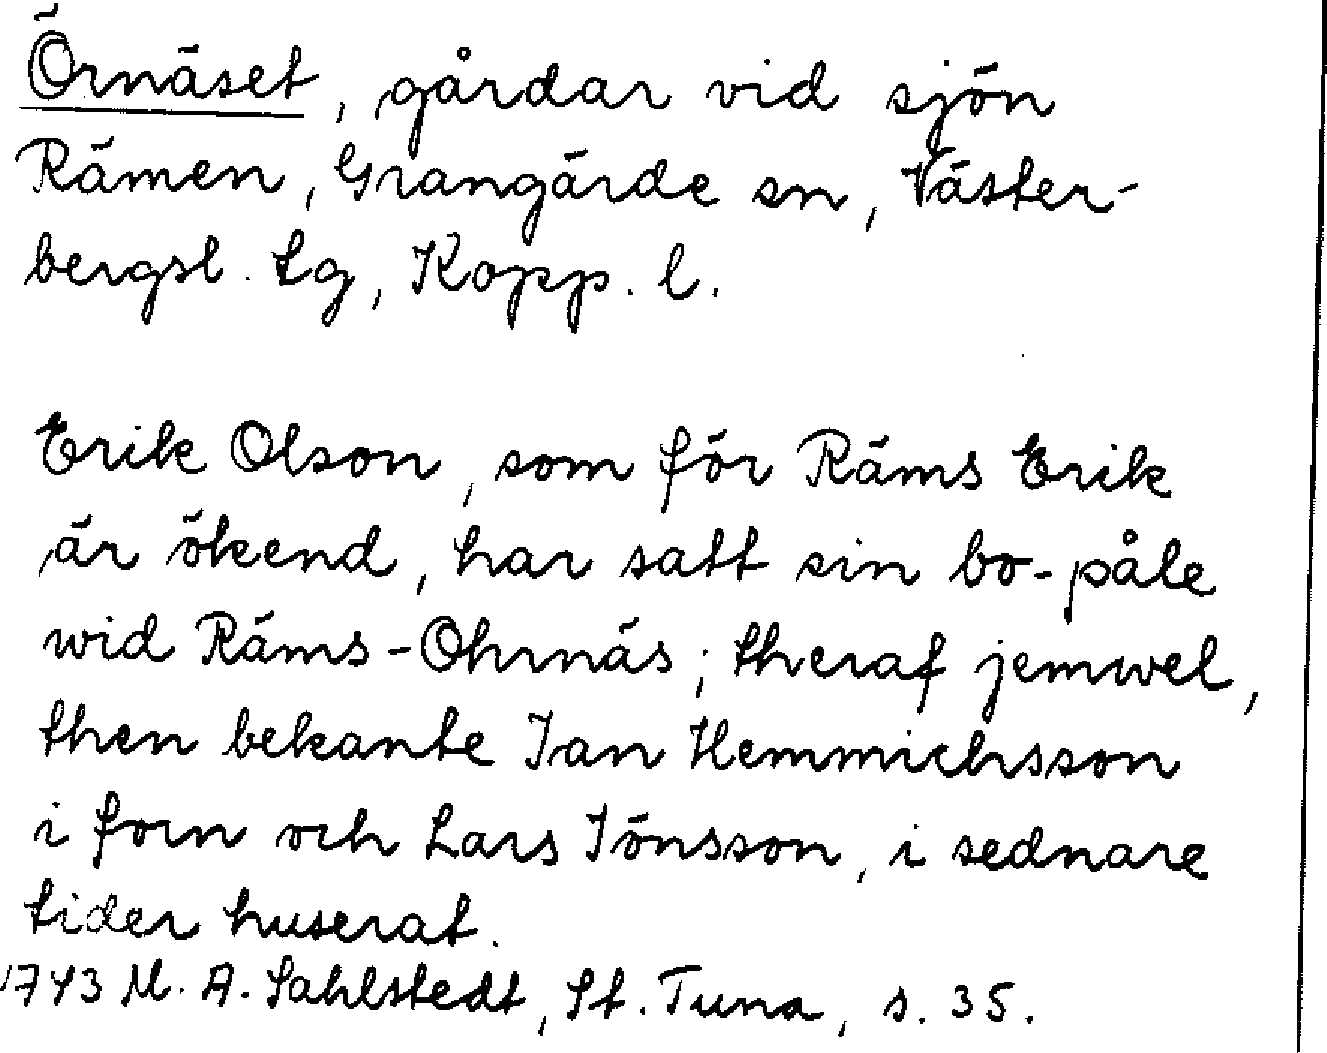 Örnäset, gårdar vid sjön
Rämen, Grangärde sn, Väster-
bergsl. Lg, Kopp. l.
Erik Olson, som för Räms Erik
är ökend, har satt sin bo-påle
wid Räms-Ohrnäs; theraf jemwel,
then bekante Jan Hemmichsson
i forn och Lars Jönsson, i sednare
tider huserat.
1743 M. A. Sahlstedt, St. Tuna, s. 35.